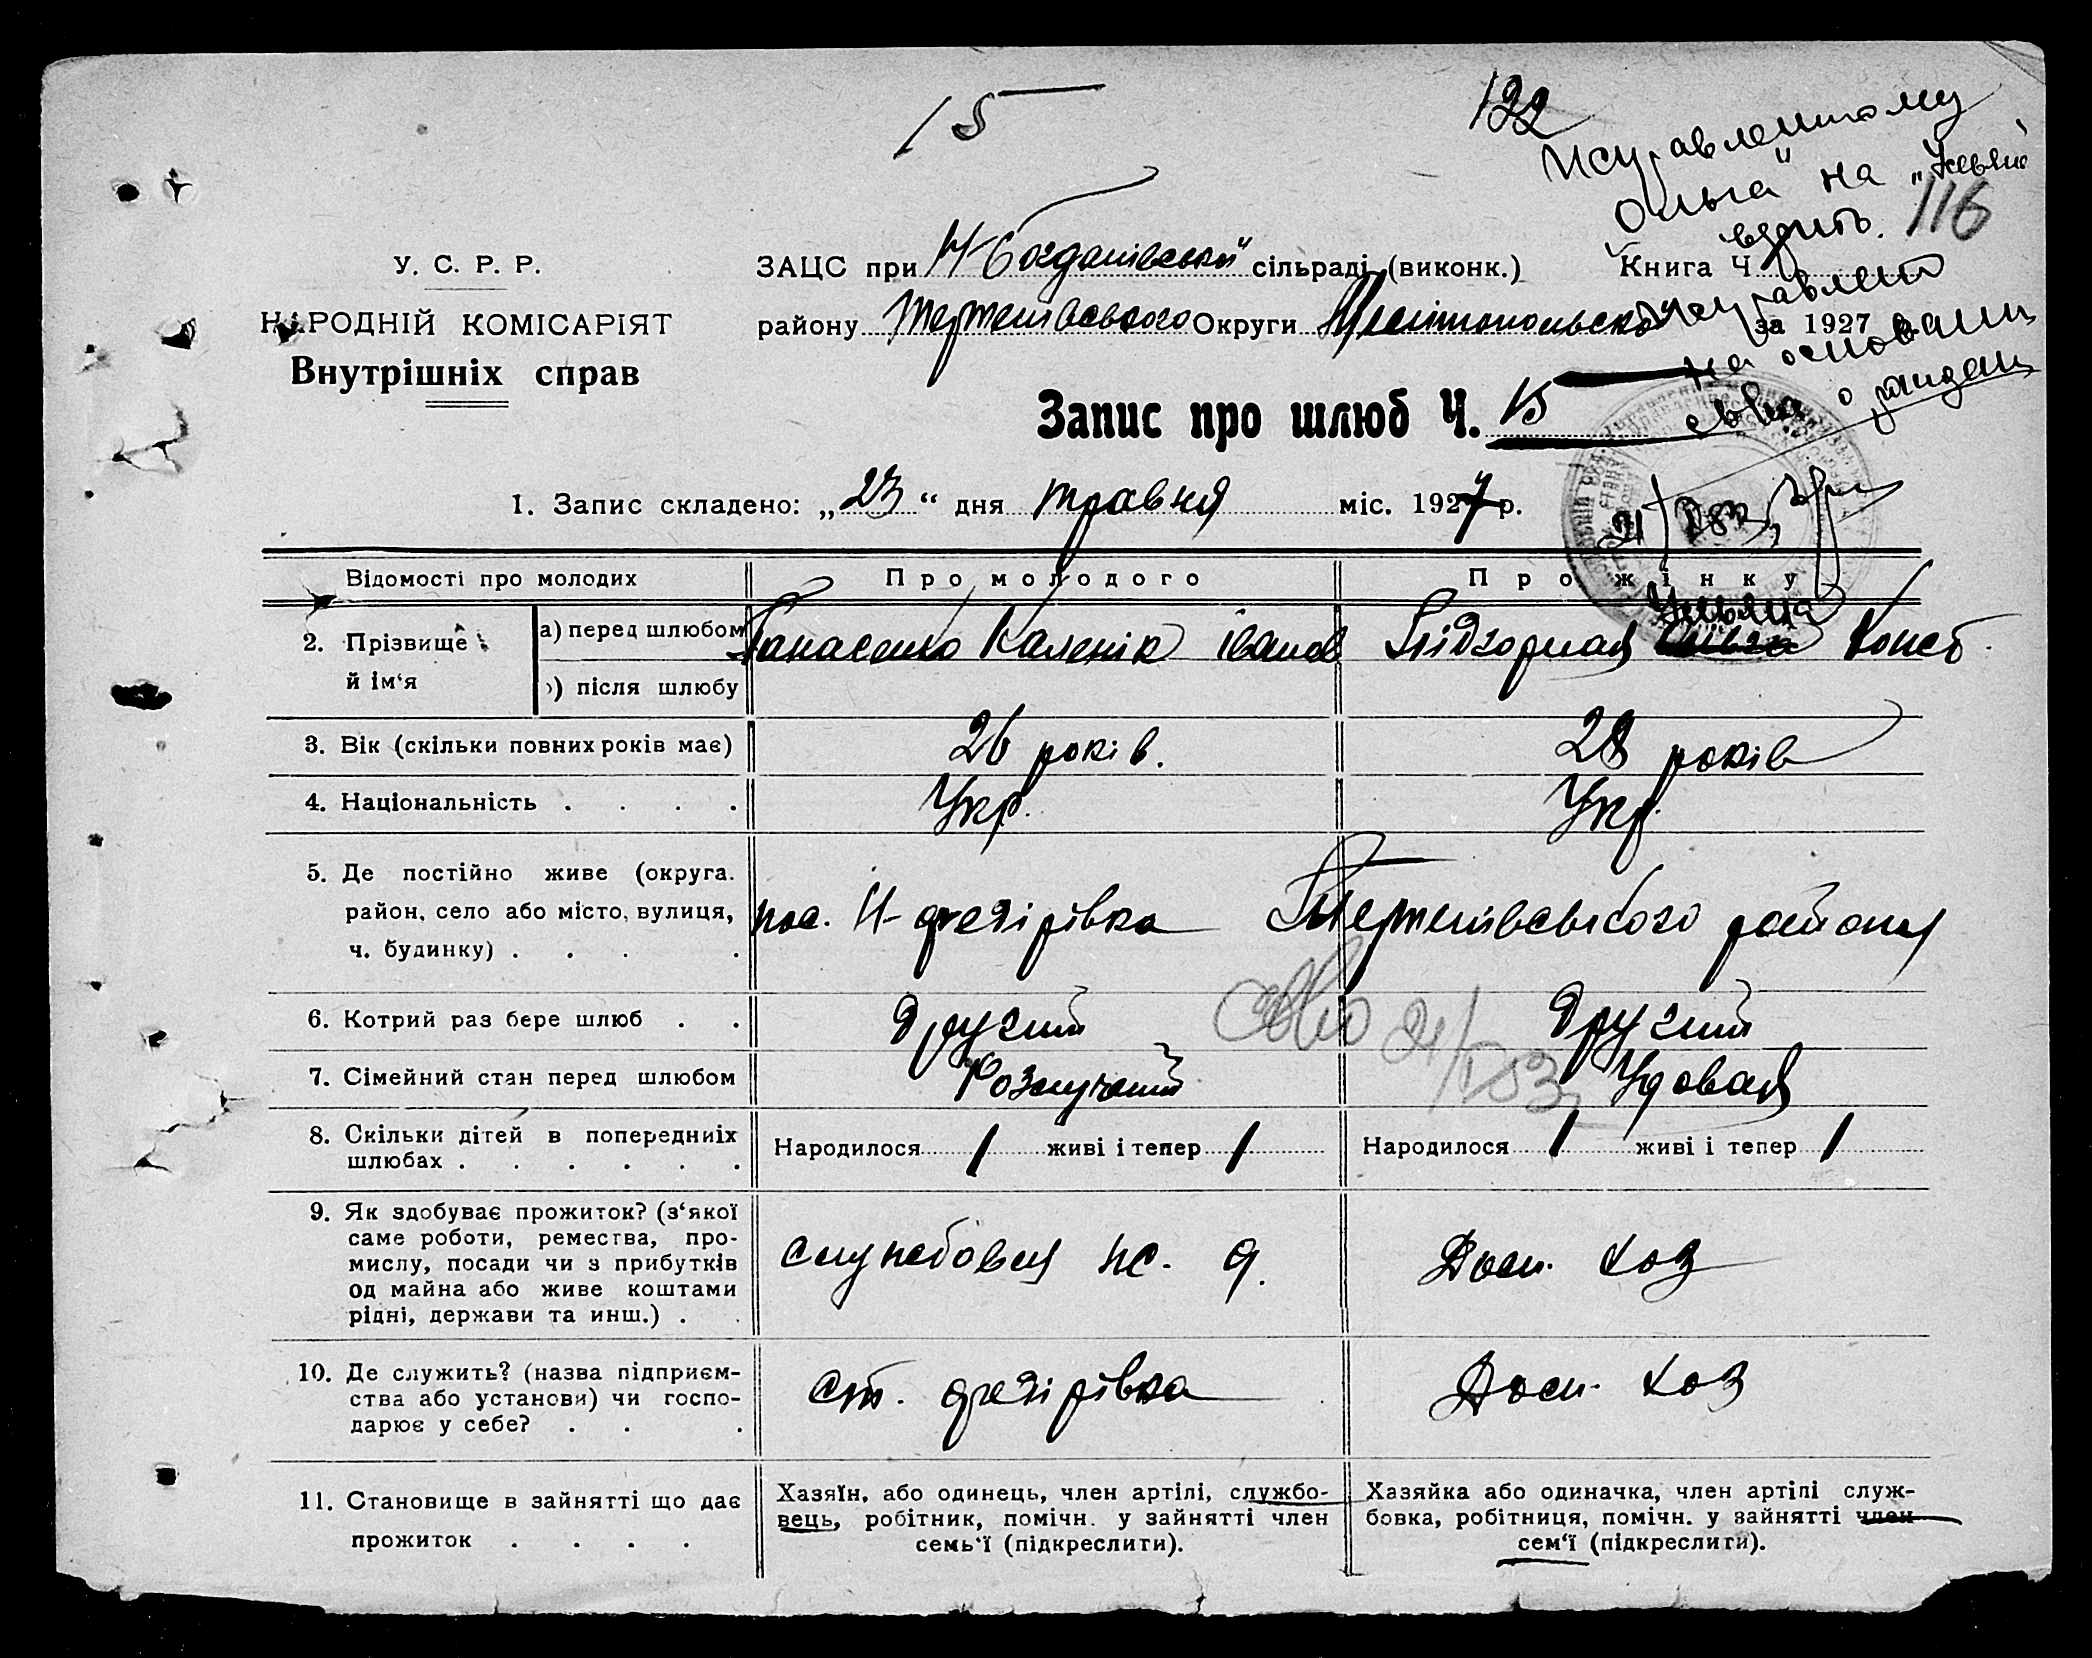 15
122
Исправленному
"Ольга" на "Ульяна"
верить.
116
У. С. Р. Р.
НАРОДНІЙ КОМІСАРІЯТ
Внутрішніх справ
ЗАЦС при Н Богданівській сільраді (виконк.) Книга Ч.
району Терпеніївського Округи Мелітопольської за 1927 р.
Исправлено
на основании
св-ва о рождении
Запис про шлюб Ч. 15
1. Запис складено: „23“ дня травня міс. 1927 р.
Відомості про молодих Про молодого Про жінку
Ульяна
2. Прізвище й ім‘я а) перед шлюбом Панасенко Каленік Іванов Підгорная Ольга Конст.
б) після шлюбу
3. Вік (скільки повних років має) 26 років. 28 років
4. Національність . . . . Укр. Укр.
5. Де постійно живе (округа.
район, село або місто, вулиця, пос. Н-федірівка Терпеніівського району
ч. будинку) . . . .
6. Котрий раз бере шлюб . . Другий Другий
7. Сімейний стан перед шлюбом Розлучений Удовая
8. Скільки дітей в попередниіх Народилося 1 живі і тепер 1 Народилося 1 живі і тепер 1
шлюбах . . . . . .
9. Як здобуває прожиток? (з‘якої
саме роботи, ремества, про-
мислу, посади чи з прибутків службовец ж. д. Дом. хоз
од майна або живе коштами
рідні, держави та инш.) . .
10. Де служить? (назва підприєм-
ства або установи) чи госпо- ст. федірівка Дом. хоз
дарює у себе? . . .
11. Становище в зайнятті що дає
прожиток . . . .
Хазяїн, або одинець, член артілі, службо-
вець, робітник, помічн. у зайнятті член
семь‘ї (підкреслити).
Хазяйка або одиначка, член артілі служ-
бовка, робітниця, помічн. у зайнятті член
сем‘ї (підкреслити).